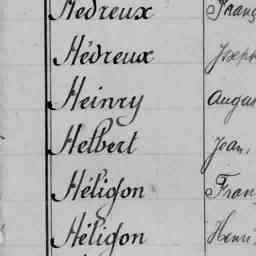 Hédreux Franç
Hédreux Joseph
Heinry Augus
Helbert Jean,
Héligon Fran
Héligon Henri